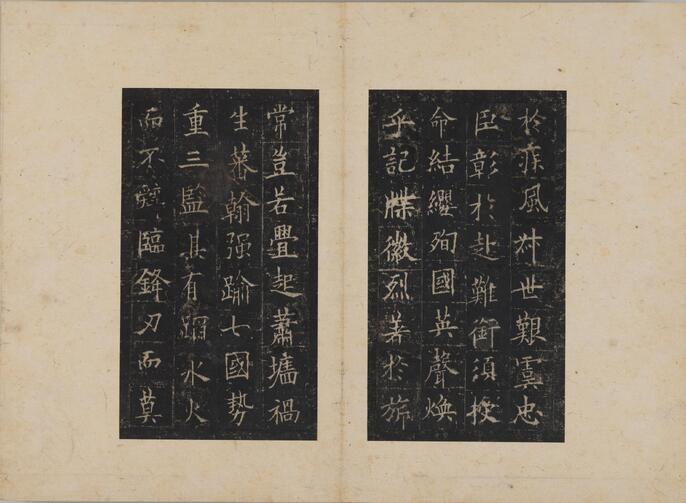 於疾風叔世艱虞忠
臣彰於赴難銜須授
命結纓殉國英聲煥
乎記牒徽烈著於旂
常豈若疊起蕭墻禍
生蕃翰强踰七國勢
重三監其有蹈水火
而不辤臨鋒刃而莫